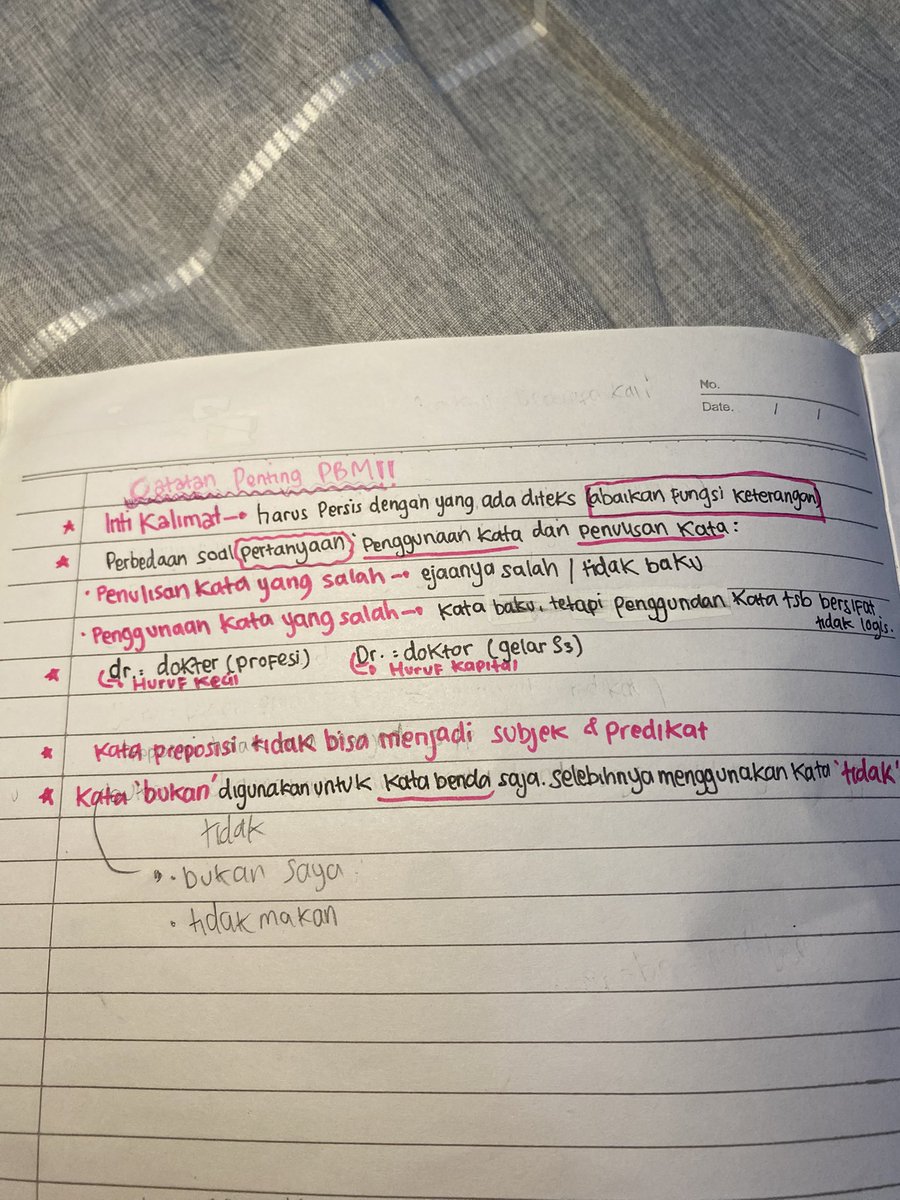 No.
Date. / /
Catatan Penting PBM!!
★ Inti Kalimat → harus Persis dengan yang ada diteks (abaikan fungsi keterangan)
★ Perbedaan soal (pertanyaan) Penggunaan Kata dan penulisan Kata:
• Penulisan Kata yang salah → ejaanya salah / tidak baku
• Penggunaan Kata yang salah → Kata baku, tetapi penggunaan Kata tsb bersifat
tidak logis.
★ dr. : dokter (profesi) Dr. : doktor (gelar S3)
Huruf Kecil Huruf Kapital
★ Kata preposisi tidak bisa menjadi subjek & predikat
★ Kata 'bukan' digunakan untuk Kata benda saja. selebihnya menggunakan Kata 'tidak'
tidak
• bukan saya
• tidak makan